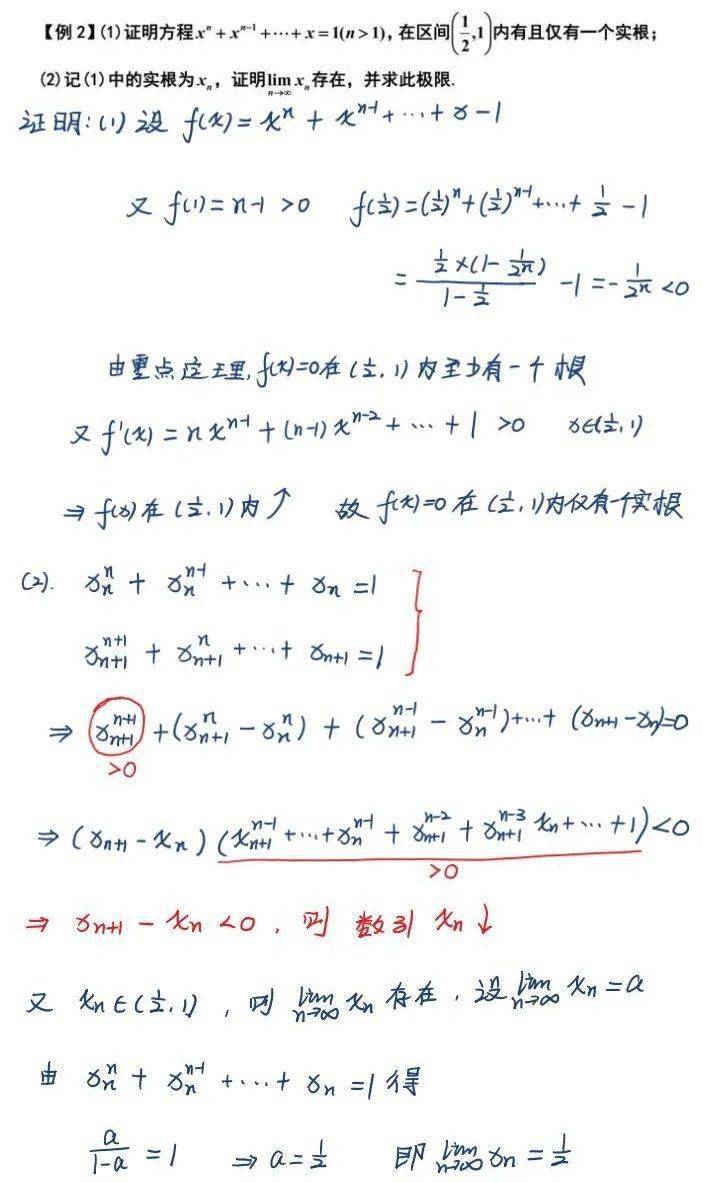 【例 2】(1)证明方程xⁿ + xⁿ⁻¹ + ⋯ + x = 1(n > 1)，在区间(1/2, 1)内有且仅有一个实根；
(2)记(1)中的实根为xₙ，证明lim_{n→∞} xₙ存在，并求此极限.
证明：(1) 设 f(x) = xⁿ + xⁿ⁻¹ + ⋯ + x - 1
又 f(1) = n-1 > 0 f(1/2) = (1/2)ⁿ + (1/2)ⁿ⁻¹ + ⋯ + 1/2 - 1
= (1/2 × (1 - 1/2ⁿ))/(1 - 1/2) - 1 = - 1/2ⁿ < 0
由零点定理, f(x)=0在(1/2, 1)内至少有一个根
又 f'(x) = n xⁿ⁻¹ + (n-1) xⁿ⁻² + ⋯ + 1 > 0 x∈(1/2, 1)
⇒ f(x)在(1/2, 1)内↑ 故 f(x)=0 在(1/2, 1)内仅有一个实根
(2). x_n^n + x_n^{n-1} + ⋯ + x_n = 1
x_{n+1}^{n+1} + x_{n+1}^n + ⋯ + x_{n+1} = 1
⇒ x_{n+1}^{n+1} + (x_{n+1}^n - x_n^n) + (x_{n+1}^{n-1} - x_n^{n-1}) + ⋯ + (x_{n+1} - x_n) = 0
>0
⇒ (x_{n+1} - x_n)(x_{n+1}^{n-1} + ⋯ + x_n^{n-1} + x_{n+1}^{n-2} + x_{n+1}^{n-3} x_n + ⋯ + 1) < 0
>0
⇒ x_{n+1} - x_n < 0, 则 数列 x_n ↓
又 x_n ∈ (1/2, 1), 则 lim_{n→∞} x_n 存在, 设 lim_{n→∞} x_n = a
由 x_n^n + x_n^{n-1} + ⋯ + x_n = 1 得
a/(1-a) = 1 ⇒ a = 1/2 即 lim_{n→∞} x_n = 1/2